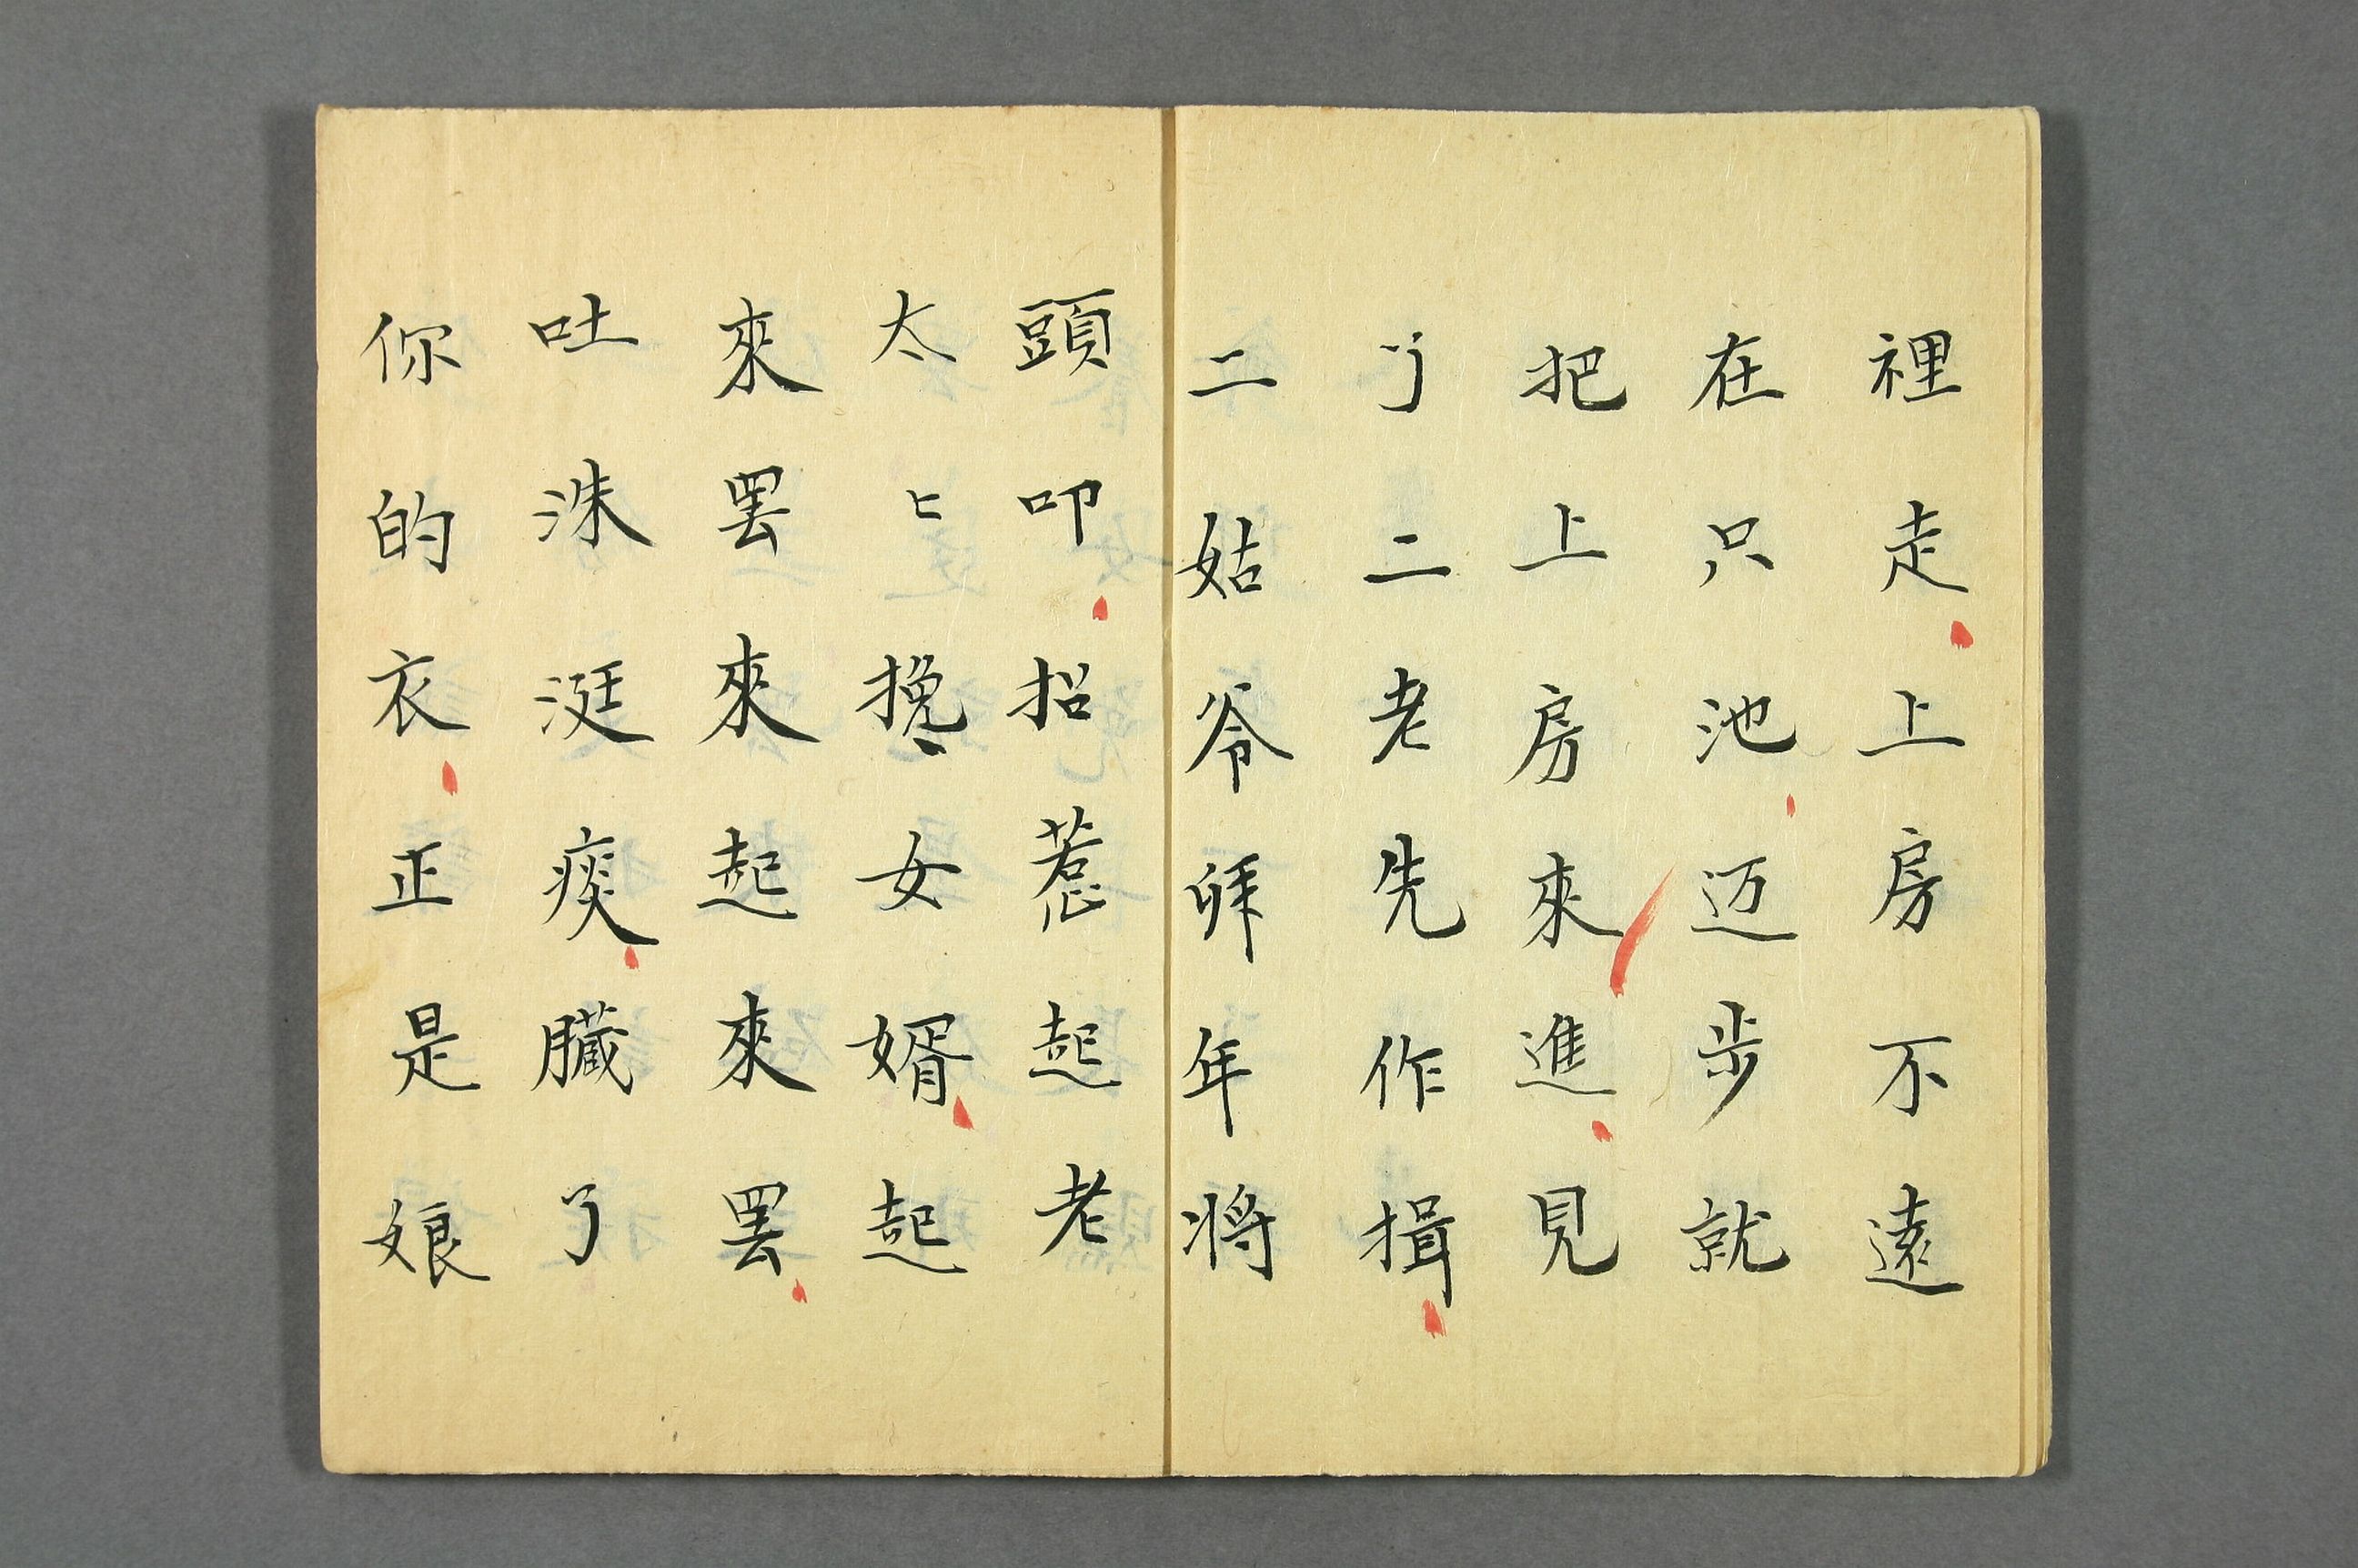 裡走上房不遠
在只池迈步就
把上房來進見
了二老先作揖
二姑爷拜年將
頭叩招惹起老
太〻搀女婿起
來罢來起來罢
吐洙涎痰臓了
你的衣正是娘